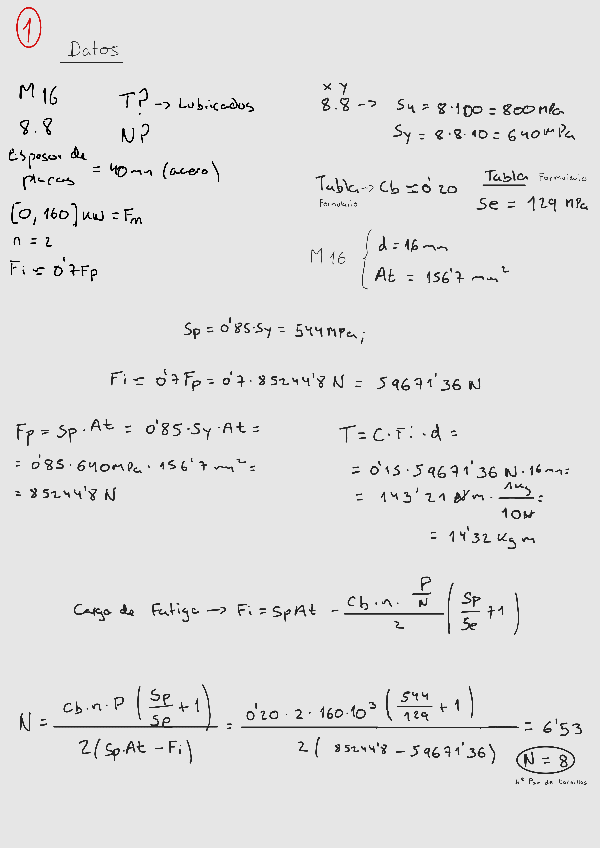 1
Datos
M16
T? -> Lubricados
8.8
N?
Espesor de placas = 40mm (acero)
[0, 160] kW = Fm
n = 2
Fi = 0'7Fp
x y
8.8 -> Su = 8·100 = 800 mPa
Sy = 8·8·10 = 640 mPa
Tabla -> Cb = 0'20
Formulario
Tabla Formulario
Se = 129 mPa
M16 { d = 16 mm
At = 156'7 mm²
Sp = 0'85·Sy = 544 mPa;
Fi = 0'7 Fp = 0'7·85244'8 N = 59671'36 N
Fp = Sp·At = 0'85·Sy·At =
= 0'85·640mPa·156'7 mm² =
= 85244'8 N
T = C·Fi·d =
= 0'15·59671'36 N·16mm =
= 143'21 Nm · 1kg/10N =
= 14'32 kgm
Carga de Fatiga -> Fi = SpAt - (Cb·n·P/N)/2 (Sp/Se + 1)
N = Cb·n·P (Sp/Sp + 1) / 2(Sp·At - Fi) = 0'20·2·160·10³ (544/129 + 1) / 2(85244'8 - 59671'36) = 6'53
N = 8
nº Par de tornillos